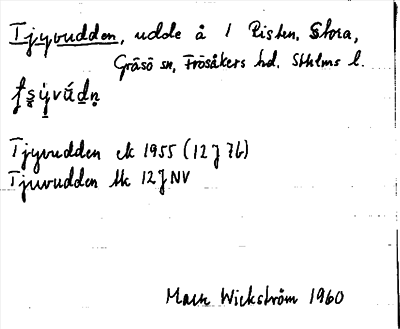 Tjyvudden, udde å / Risten, Stora,
Gräsö sn, Frösåkers hd. Sthlms l.
Tjyvudden ek 1955 (12J 7b)
Tjuvudden tk 12J NV
Wickström 1960